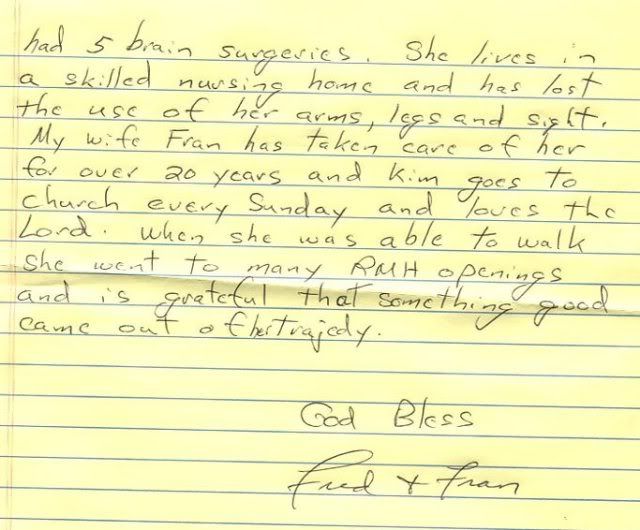 had 5 brain surgeries. She lives in
a skilled nursing home and has lost
the use of her arms, legs and sight.
My wife Fran has taken care of her
for over 20 years and Kim goes to
church every Sunday and loves the
Lord. When she was able to walk
she went to many RMH openings
and is grateful that something good
came out of her trajedy.
God Bless
Fred + Fran